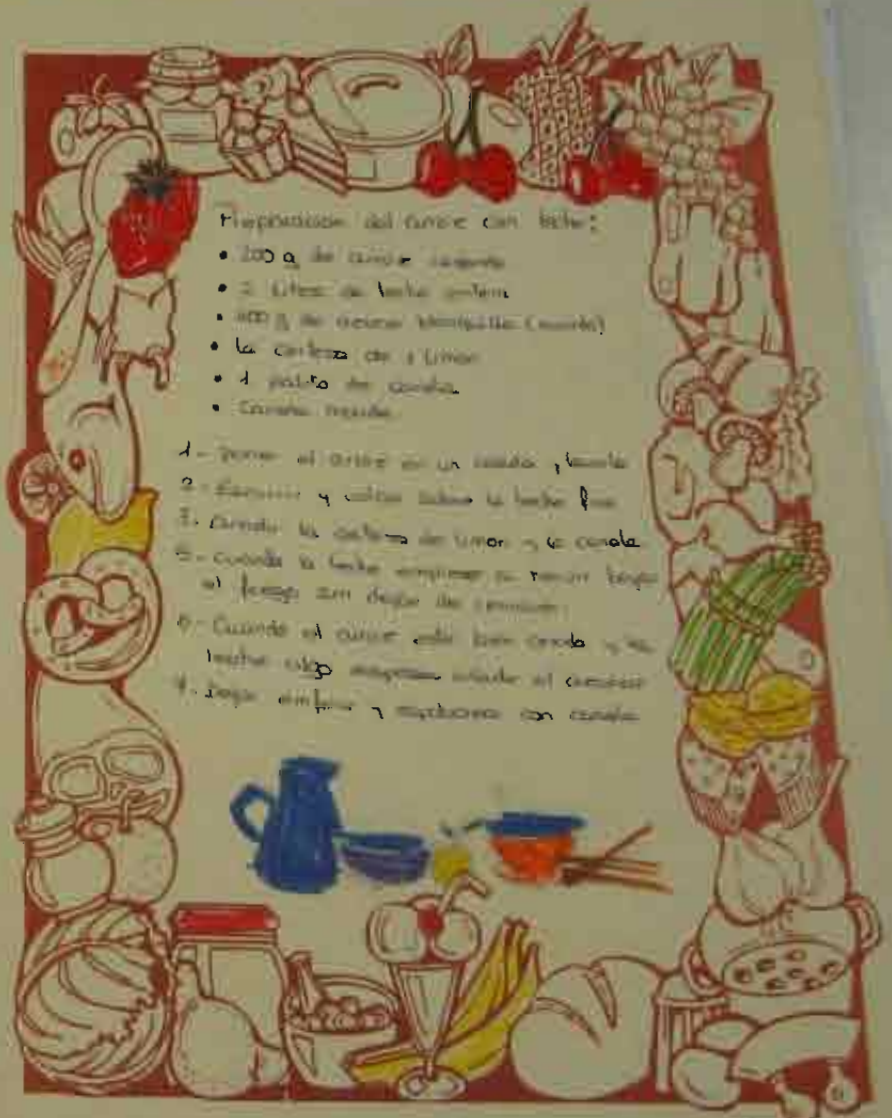 Preparación del arroz con leche:
• 200 g de arroz
• 2 Litros de leche entera
• 400 g de azucar blanquilla
• La corteza de 1 Limon
• 1 palito de canela
• Canela molida
1- Poner el arroz en un y
2- Escurrir y sobre la leche fria
3- la corteza de Limon y la canela
5- Cuando la leche empiece a bajar
el fuego sin dejar de remover.
6- Cuando el arroz esté bien y la
leche algo el
7- Dejar enfriar y espolvorear con canela